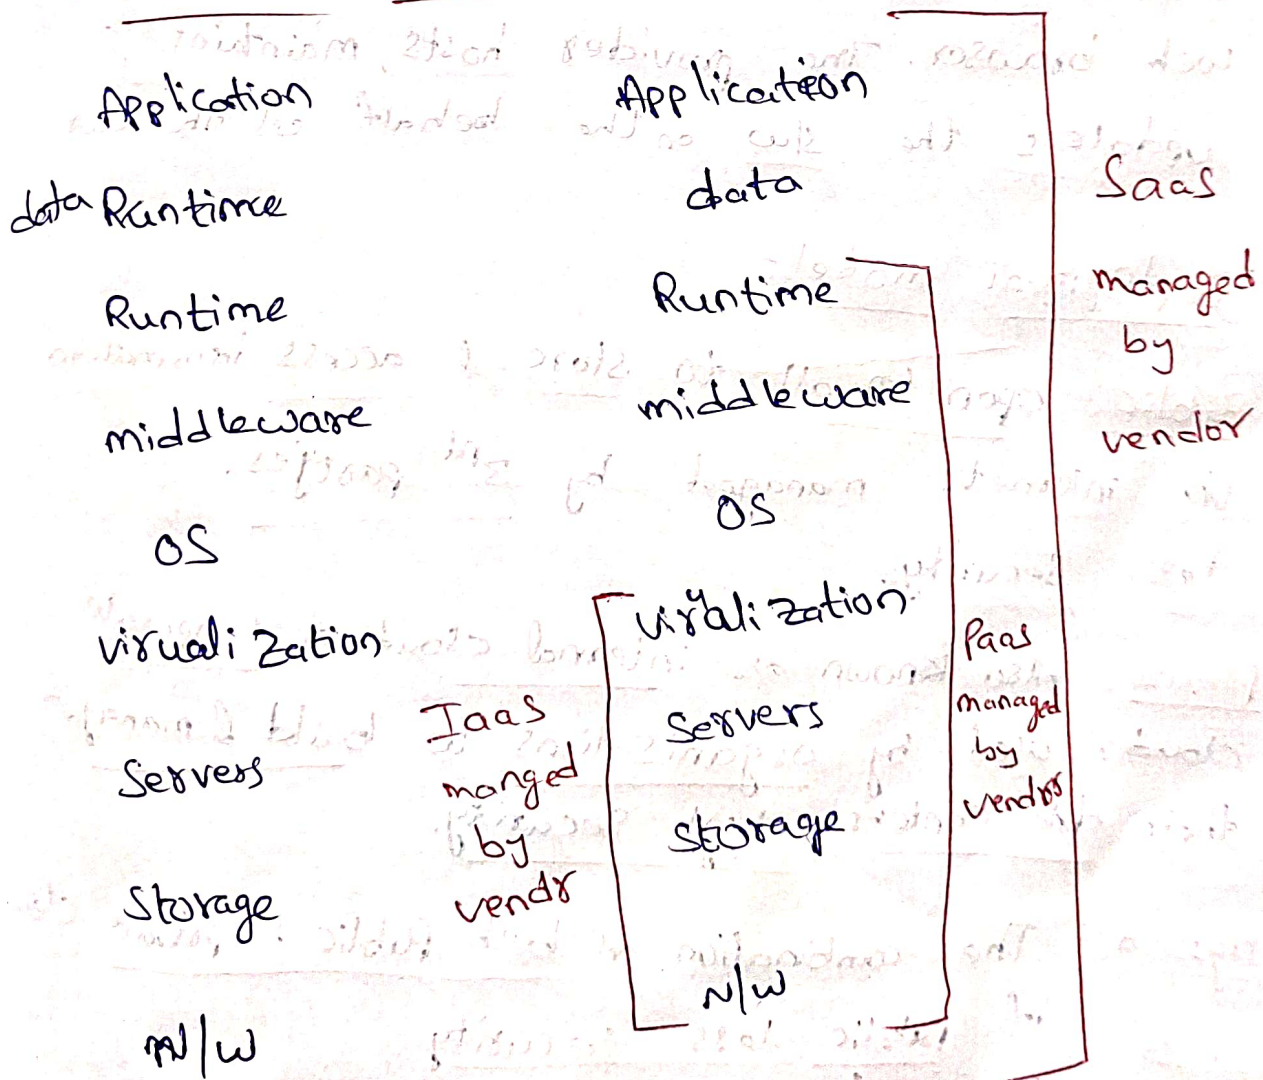 Application
data Runtime
Runtime
middleware
OS
virualization
Servers
Storage
N/W
Iaas
manged
by
vendr
Application
data
Runtime
middleware
OS
virualization
Servers
Storage
N/W
Paas
managed
by
vendors
Saas
managed
by
vendor